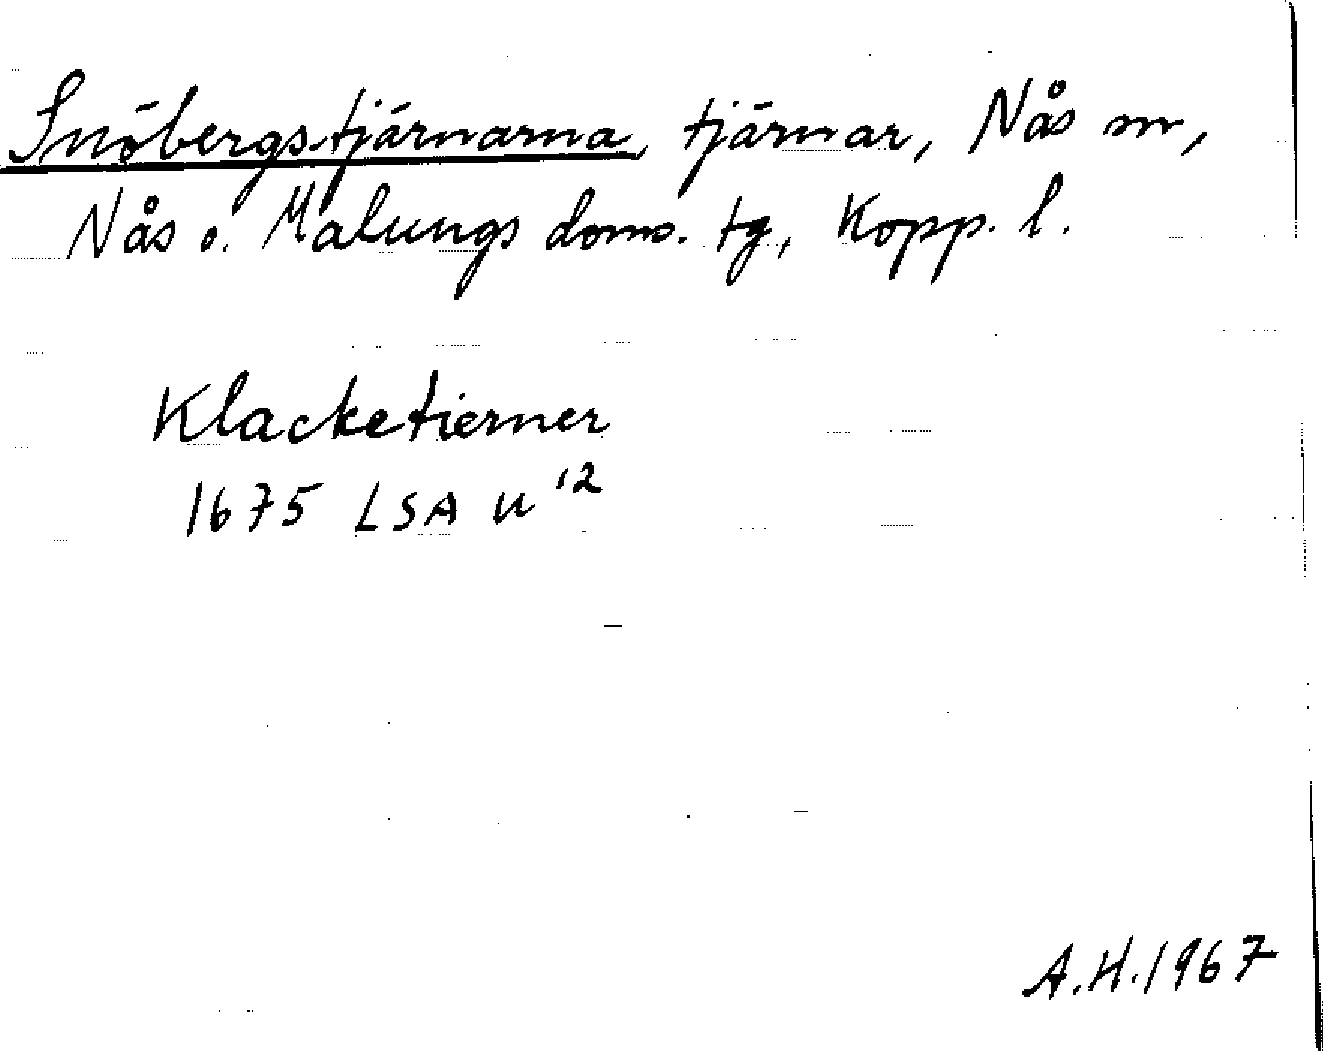 Snöbergstjärnarna, tjärnar, Nås sn,
Nås o. Malungs doms. tg, Kopp. l.
Klacketierner
1675 LSA U 12
A.H. 1967